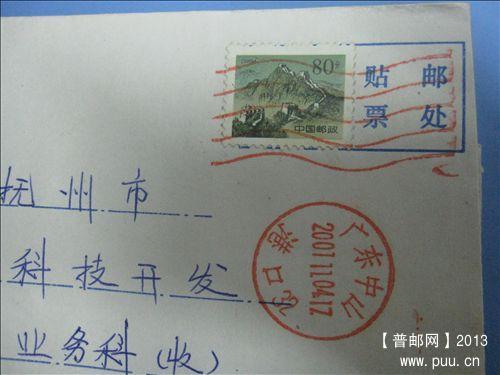 80分
中国邮政
贴 邮
票 处
抚州市
科技开发
业务科(收)
广东中山
2001.11.04.17
港口
【普邮网】2013
www.puu.cn